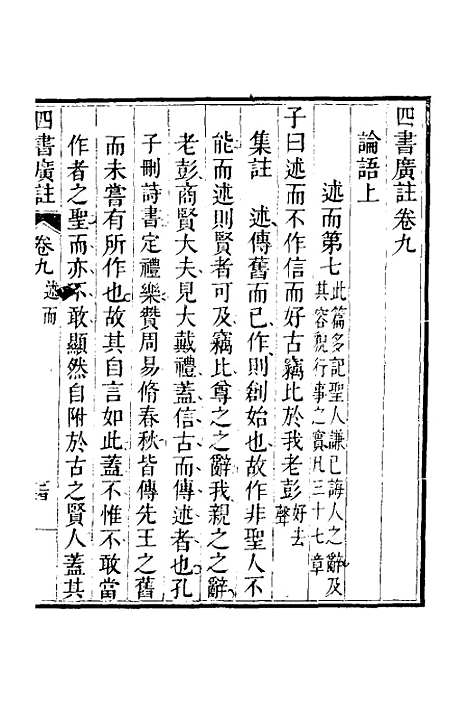 四書廣註卷九
論語上
述而第七此篇多記聖人謙已誨人之辭及
其容貌行事之實凡三十七章
子曰述而不作信而好古竊比於我老彭好去
聲
集註 述傳舊而已作則創始也故作非聖人不
能而述則賢者可及竊比尊之之辭我親之之辭
老彭商賢大夫見大戴禮蓋信古而傳述者也孔
子刪詩書定禮樂贊周易脩春秋皆傳先王之舊
而未嘗有所作也故其自言如此蓋不惟不敢當
作者之聖而亦不敢顯然自附於古之賢人蓋其
四書廣註 卷九 述而